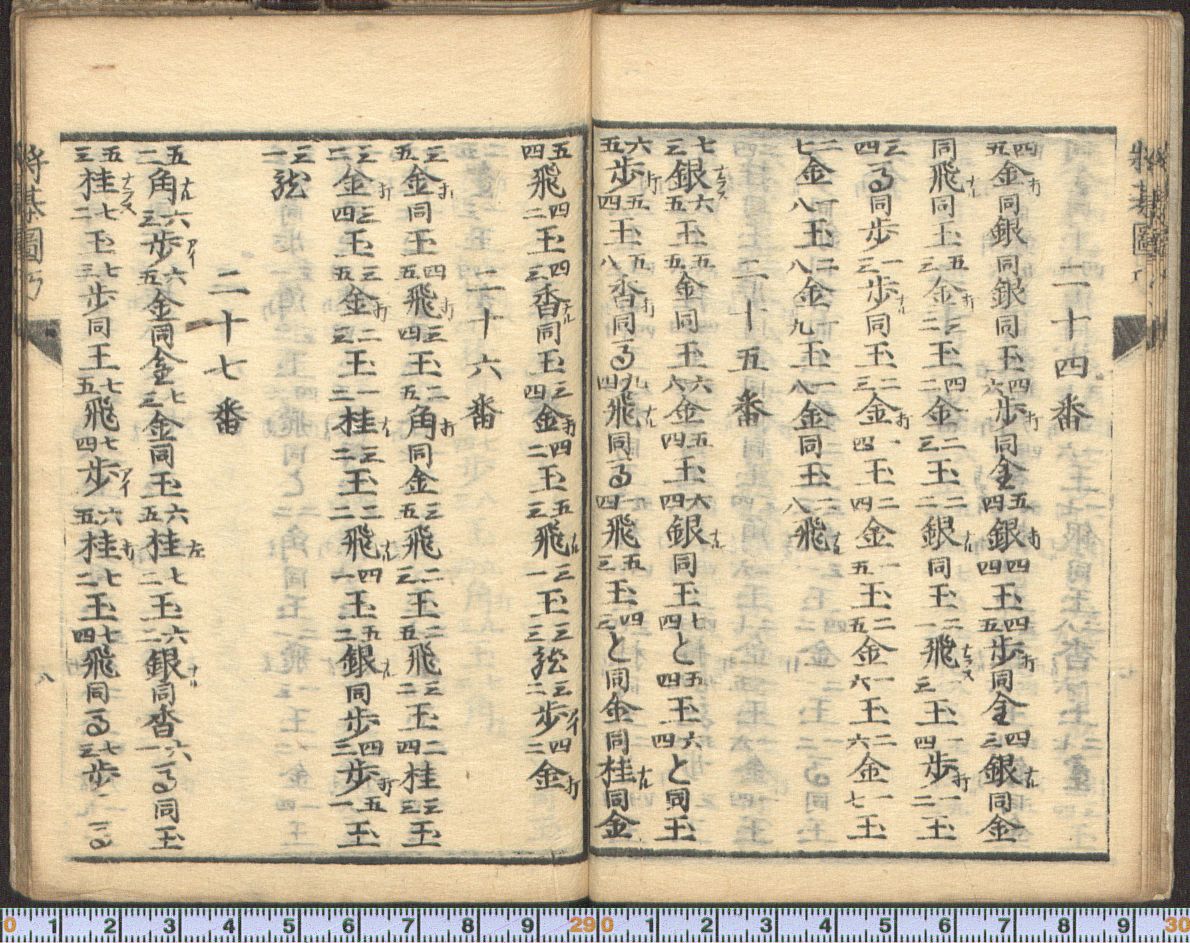 二十四番
四五金打同銀同銀同玉四六歩打同金五四銀打四四玉四五歩打同金四三銀ナル同金
同飛ナル同玉五三金打三二玉四二金二三玉二二銀ナル同玉二一飛ナラズ一三玉一四歩打一二玉
三四馬同歩一三歩ナル同玉二三金打一四玉二四金一五玉二五金一六玉二六金一七玉
二七金一八玉二八金一九玉一八金同玉二八飛ナル
二十五番
七三銀ナラズ六五玉五五金同玉六六金五四玉六四銀ナル同玉七四と五四玉六四と同玉
六五歩打五四玉五八香打同馬九四飛ナル同馬一四飛五三玉四三と同金同桂ナル同金
五四飛四二玉四三香ナル同玉三四金打四二玉五三飛ナル三一玉三三龍三二歩アイ四二金打
二十六番
三五金打同玉四五飛打三四玉二五角打同金三五飛二三玉二五飛三二玉二四桂三三玉
三二金打三四玉三五金打二三玉一三桂ナル三二玉二二飛ナル四一玉五二銀ナル同歩四二歩打五一玉
三一龍
二十七番
五二角ナル六三歩アイ六五金同金七三金同玉六五桂左七二玉六二銀ナル同香六一馬同玉
五三桂ナラズ七二玉七三歩同玉七五飛七四歩アイ六五桂打七二玉七四飛同馬七三歩一馬
将棊圖巧
八
0 1 2 3 4 5 6 7 8 9 29 0 1 2 3 4 5 6 7 8 9 30